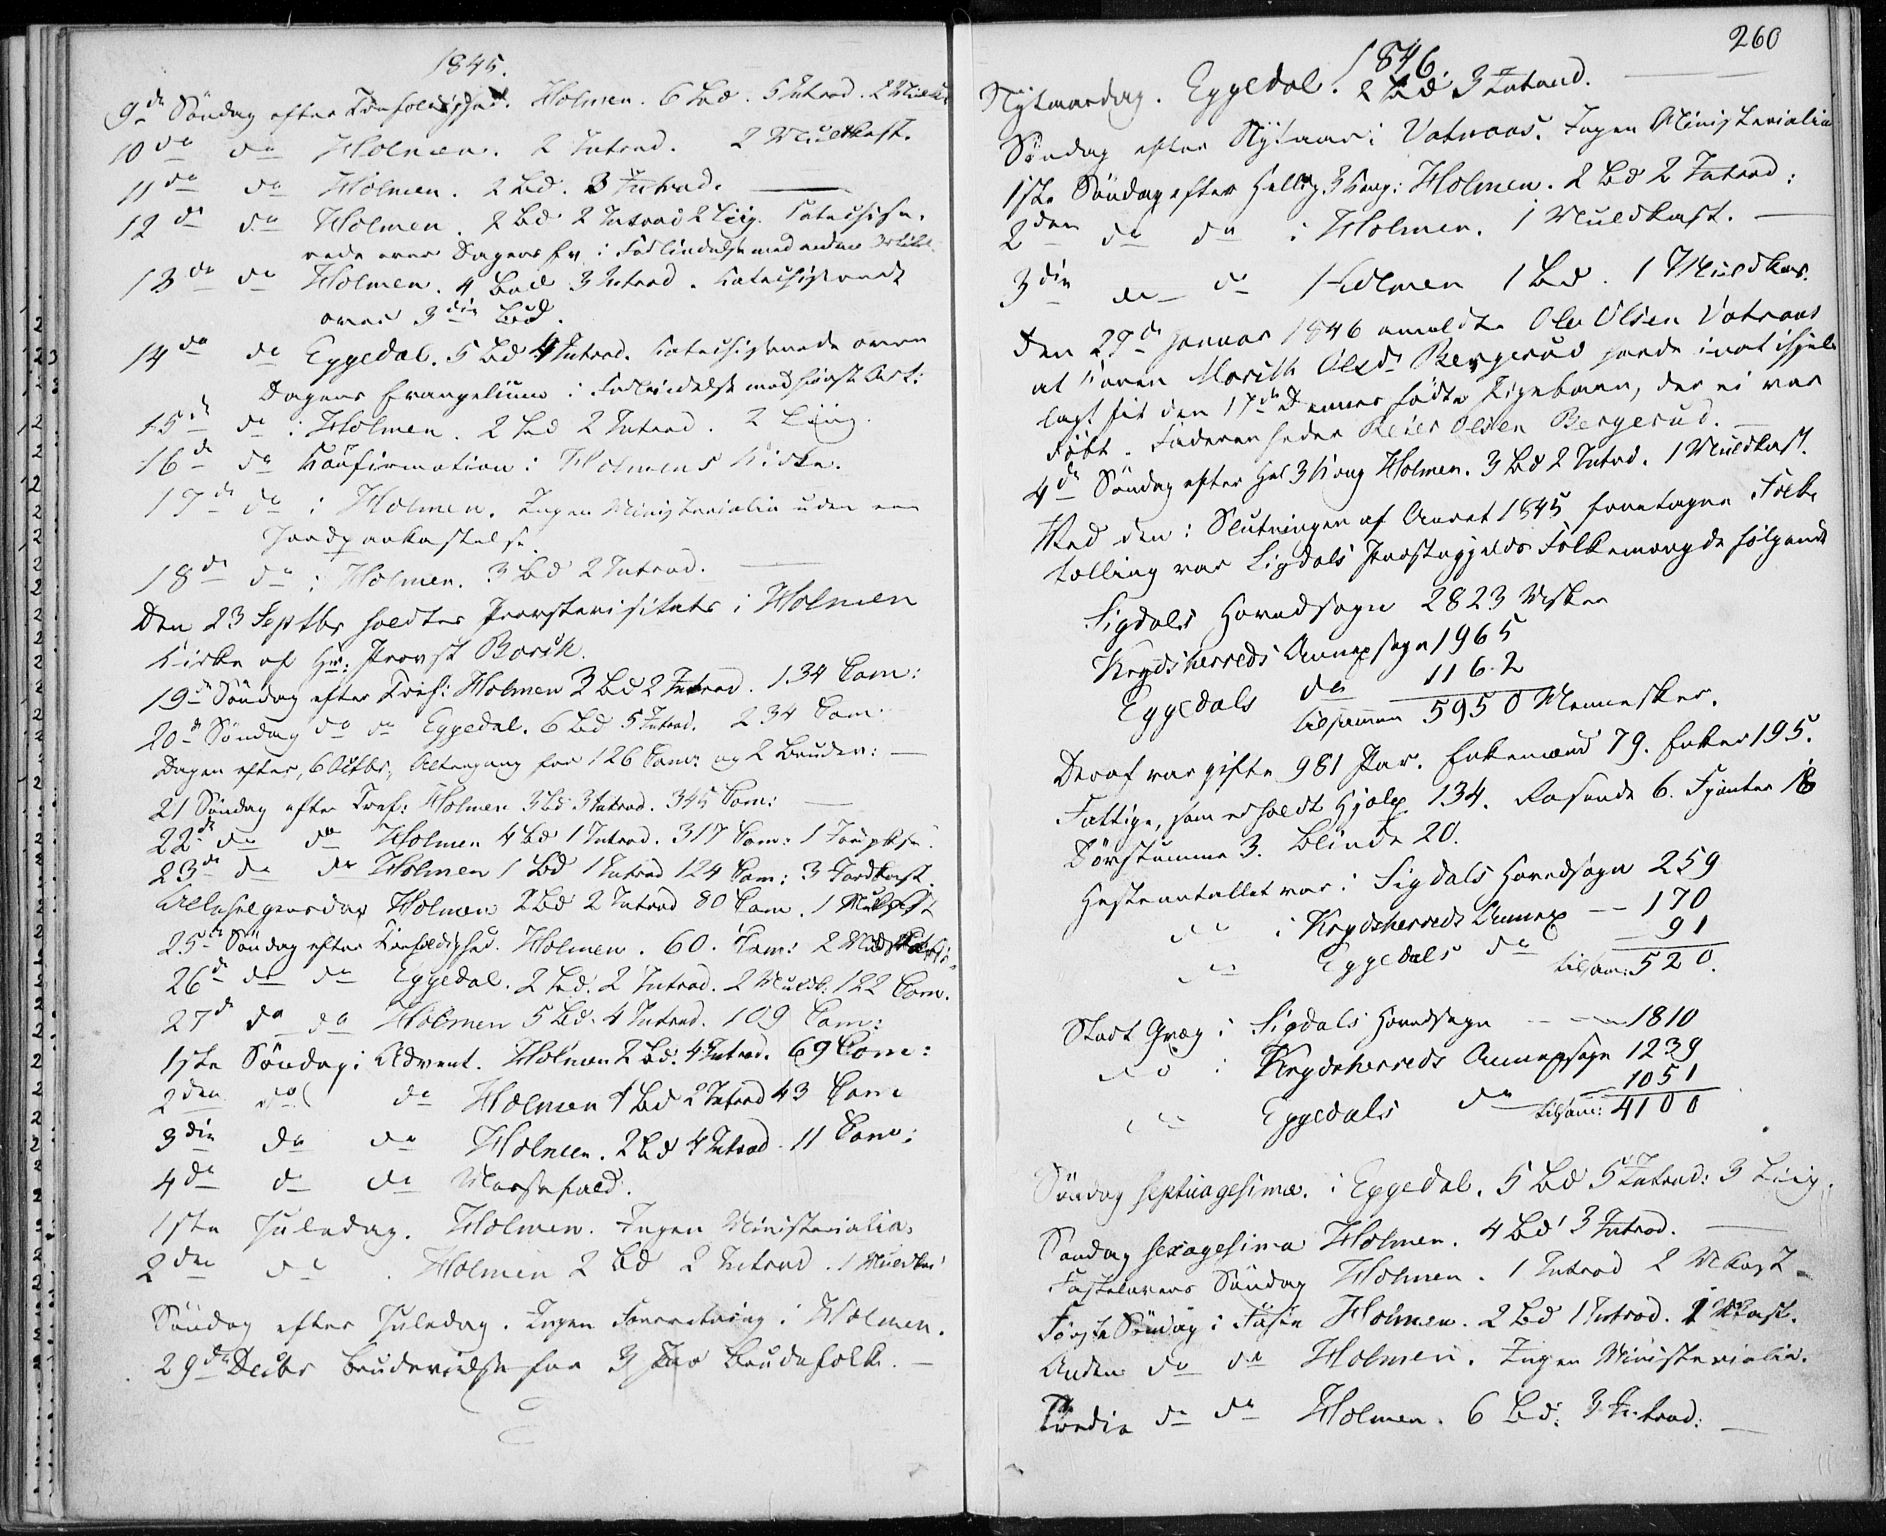 1845.
9de Söndag efter Trefoldighed. Holmen. 6 Bd. 5 Introd. 2 Muldk
10de do Holmen. 2 Introd. 2 Muldkast.
11de do Holmen. 2 Bd. 3 Introd.
12de do Holmen. 2 Bd 2 Introd 2 Liig. Catechise-
rede over Dagens Ev. i Forbindelse med anden Artikl
13de do Holmen. 4 Bd 3 Introd. Katechiserede
over 3die Bud.
14de do Eggedal. 5 Bd 4 Introd. Katechiserede over
Dagens Evangelium i Forbindelse med første Art:
15de do i Holmen. 2 Bd 2 Introd. 2 Liig.
16de do Confirmation i Holmens Kirke.
17de do i Holmen. Ingen Ministerialia uden en
Jordpaakastelse.
18de do i Holmen. 3 Bd 2 Introd.
Den 23 Septbr holdtes Provstevisitats i Holmen
Kirke af Hr: Provst Borch.
19de Söndag efter Tref: Holmen 3 Bd 2 Introd. 134 Com:
20de Söndag do do Eggedal. 6 Bd 5 Introd. 234 Com.
Dagen efter, 6 Octbr, Altergang for 126 Com: og 2 Bruder:
21 Söndag efter Tref: Holmen 3 Bd 3 Introd. 345 Com:
22de do do Holmen 4 Bd 1 Introd. 317 Com: 1 Jordpkst.
23de do do Holmen 1 Bd 1 Introd 124 Com: 3 Jordkast.
Allehelgensdag Holmen 2 Bd 2 Introd 80 Com. 1 Muldkast
25de Söndag efter Trefoldighed. Holmen. 60. Com: 2
26de do do Eggedal. 2 Bd. 2 Introd. 2 Muldk. 122 Com.
27de do do Holmen 5 Bd. 4 Introd. 109 Com:
1ste Söndag i Advent. Holmen 2 Bd. 4 Introd. 69 Com:
2den do do Holmen 1 Bd 2 Introd 43 Com:
3die do do Holmen. 2 Bd 4 Introd. 11 Com:
4de do do Messefald.
1ste Juledag. Holmen. Ingen Ministerialia.
2den do. Holmen 2 Bd 2 Introd. 1 Muldkas
Söndag efter Juledag. Ingen Forretning i Holmen.
29de Decbr Brudevielse for 3 Par Brudefolk.
260
1846.
Nytaarsdag. Eggedal. 2 Bd 3 Introd.
Söndag efter Nytaar i Vatnaas. Ingen Ministerialia
1ste Söndag efter Hellig 3 Kong: Holmen. 2 Bd 2 Introd:
2den do do i Holmen. 1 Muldkast.
3die do do Holmen 1 Bd. 1 Muldkas.
Den 29de Januar 1846 anmeldte Ole Olsen Vatnaas
at Konen Marith Olsdr Bergerud havde inat ihjel-
lagt sit den 17de Dennes födte Pigebarn, der ei var
döbt. Faderen heder Reier Olsen Bergerud.
4de Söndag efter Hel 3 Kong Holmen. 3 Bd 2 Introd. 1 Muldkast.
Ved den i Slutningen af Aaret 1845 foretagne Folke
tælling var Sigdals Præstegjelds Folkemængde følgende
Sigdals Hovedsogn 2823 Msker
Krydsherreds Annexsogn 1965
Eggedals do 1162
tilsammen 5950 Mennesker.
Deraf var gifte 981 Par. Enkemænd 79. Enker 195.
Fattige, som erholdt Hjælp 134. Rasende 6. Fjanter 18
Dövstumme 3. Blinde 20.
Hesteantallet var i Sigdals Hovedsogn 259
do i Krydsherreds Annex 170
do Eggedals do 91
tilsam: 520.
Stort Qvæg i Sigdals Hovedsogn 1810
do i Krydsherreds Annexsogn 1239
do Eggedals do 1051
tilsam: 4100
Söndag septuagesima. i Eggedal. 5 Bd 5 Introd: 3 Liig.
Søndag sexagesima Holmen. 4 Bd 3 Introd.
Fastelavens Söndag Holmen. 1 Introd 2 Mkast.
Første Söndag i Faste Holmen. 2 Bd 1 Introd. 1 Mkast.
Anden do do Holmen. Ingen Ministerialia.
Tredie do do Holmen. 6 Bd. 3 Introd: